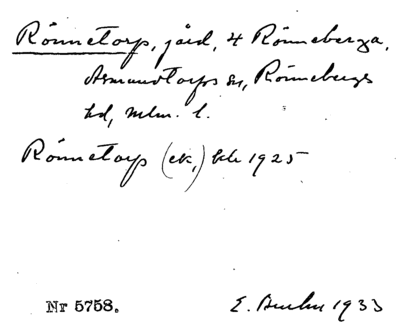 Rönnetorp, gård, 4 Rönneberga,
Asmundtorps sn, Rönnebergs
hd, Mlm. l.
Rönnetorp (ek,) blr 1925
Nr 5758. E. 1933